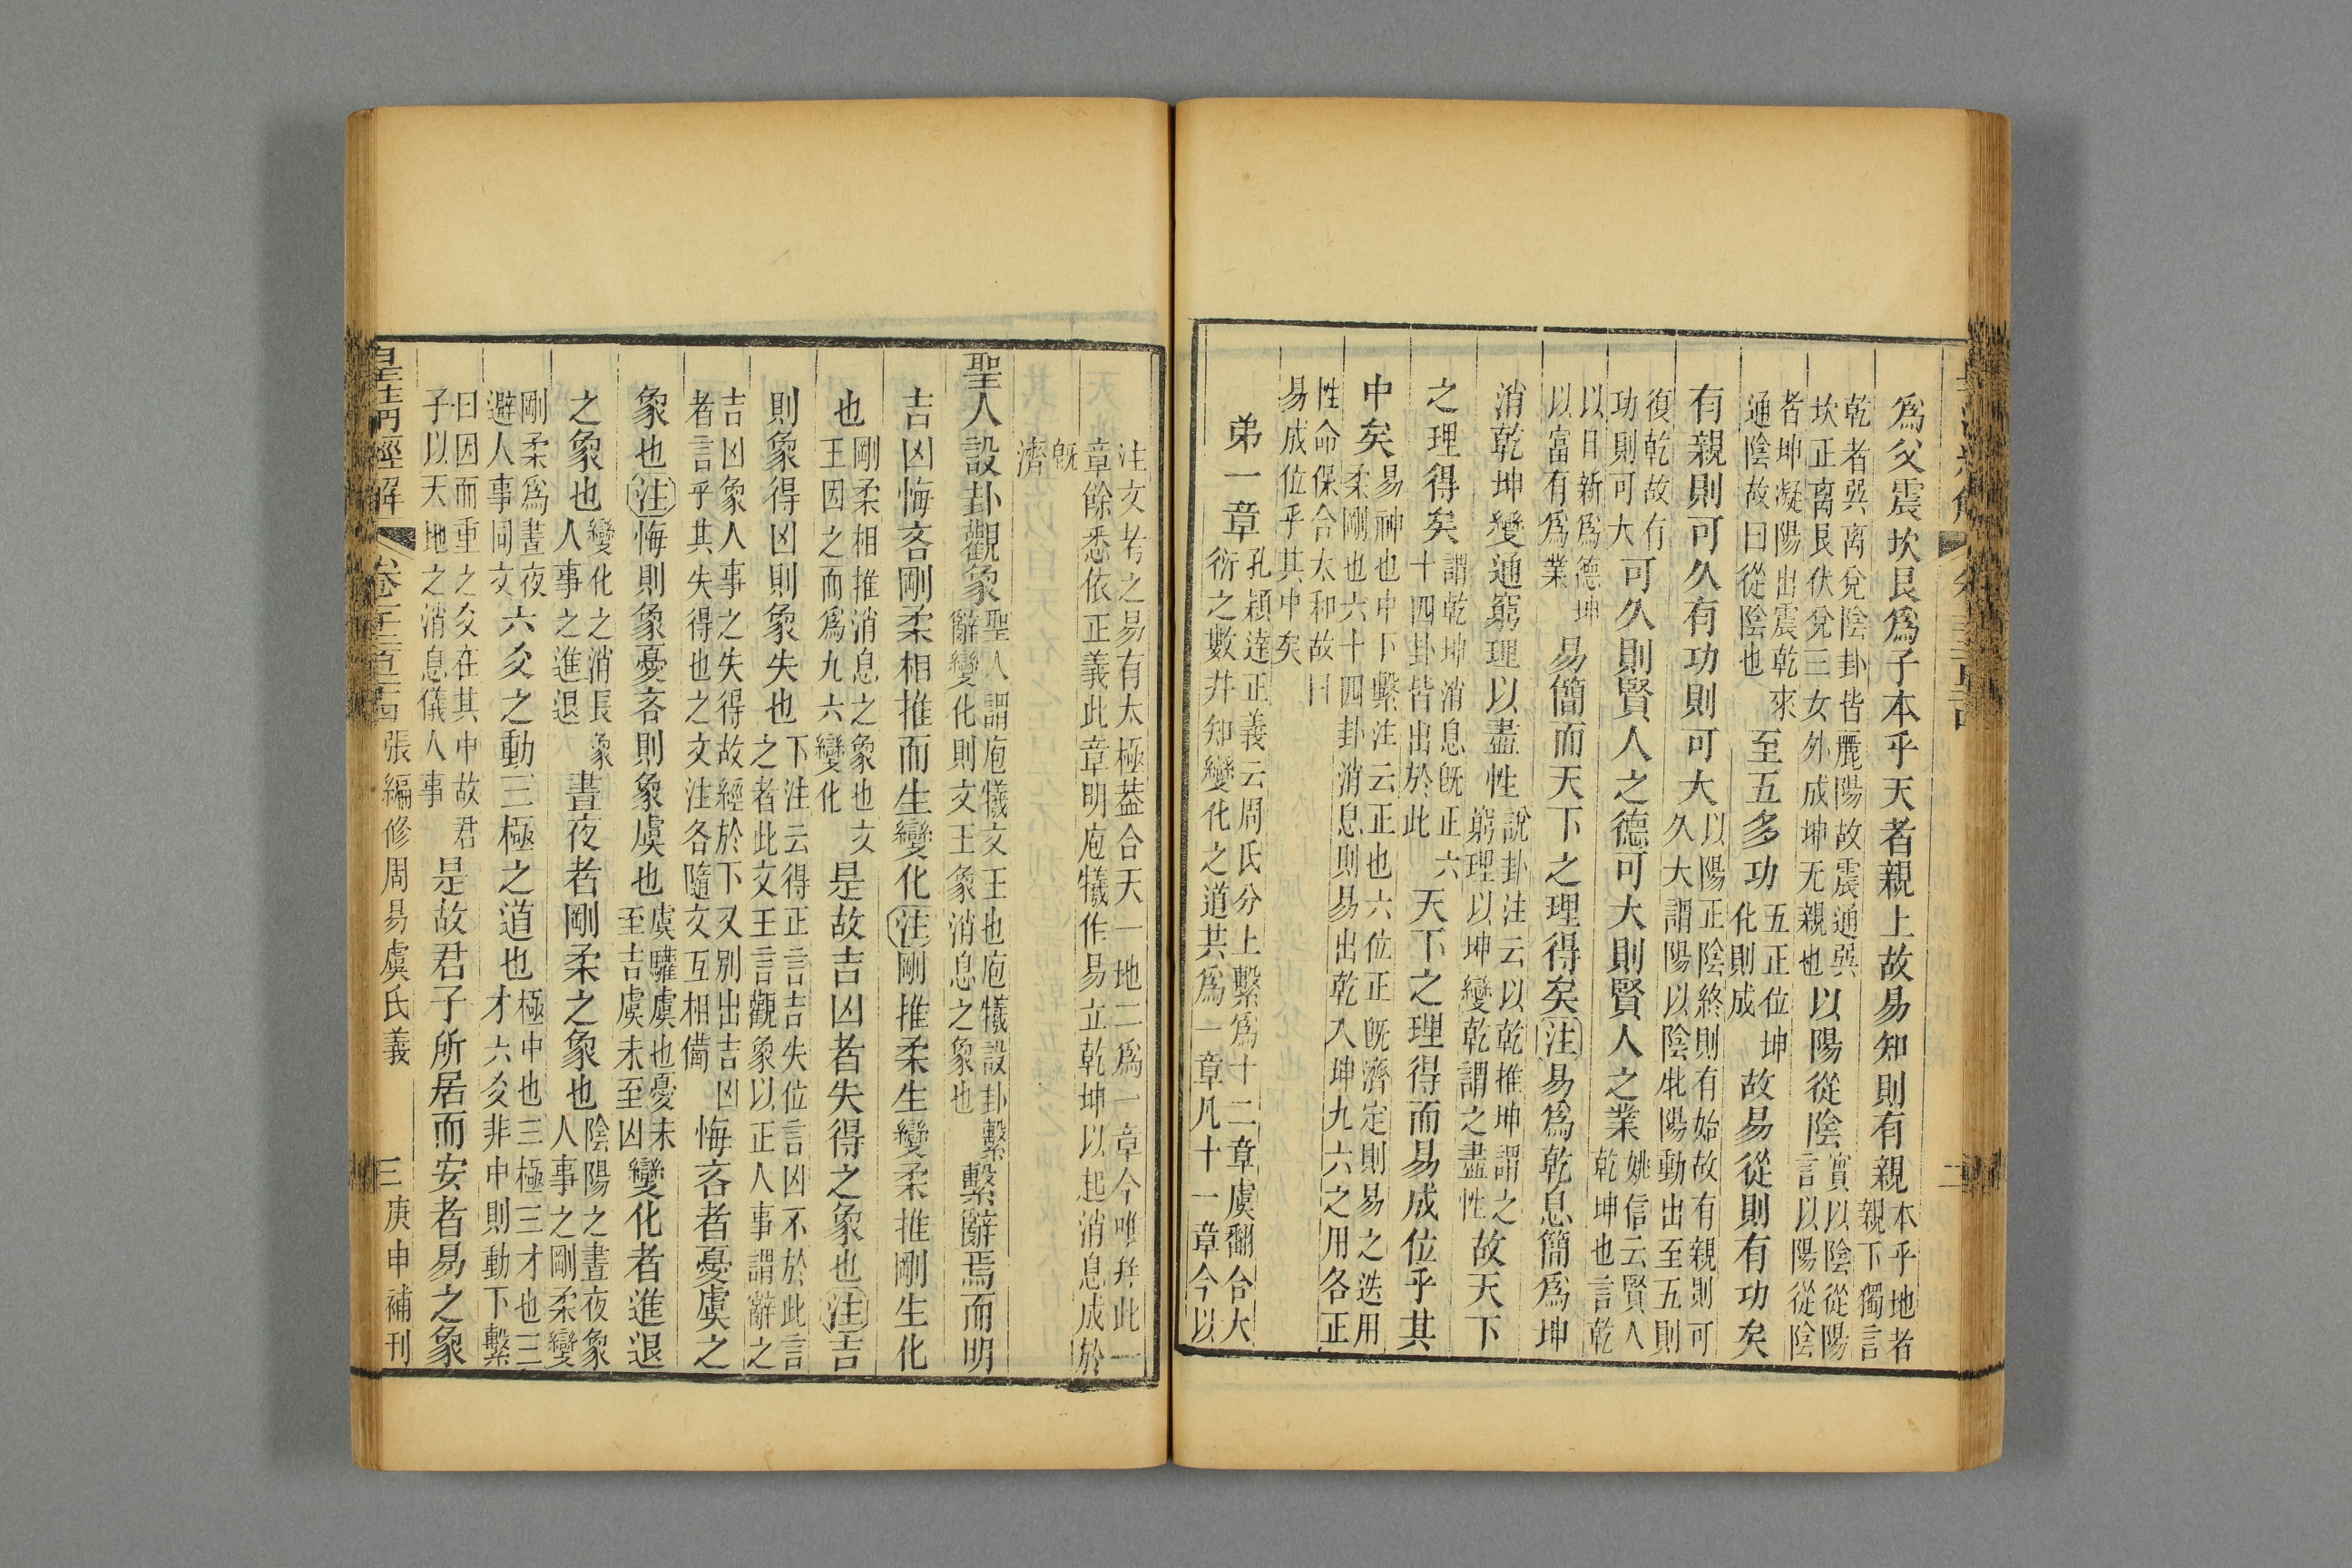 為父震坎艮為子本乎天者親上故易知則有親
本乎地者
親下獨言
乾者巽离兌陰卦皆麗陽故震通巽
坎正离艮伏兌三女外成坤无親也
以陽從陰
實以陰從陽
言以陽從陰
者坤凝陽出震乾來
通陰故曰從陰也
至五多功
五正位坤
化則成
故易從則有功矣
有親則可久有功則可大
以陽正陰終則有始故有親則可
久大謂陽以陰牝陽動出至五則
復乾故有
功則可大
可久則賢人之德可大則賢人之業
姚信云賢人
乾坤也言乾
以日新為德坤
以富有為業
易簡而天下之理得矣注易為乾息簡為坤
消乾坤變通窮理以盡性
說卦注云以乾推坤謂之
窮理以坤變乾謂之盡性
故天下
之理得矣
謂乾坤消息既正六
十四卦皆出於此
天下之理得而易成位乎其
中矣
易神也中下繫注云正也六位正既濟定則易之迭用
柔剛也六十四卦消息則易出乾入坤九六之用各正
性命保合太和故曰
易成位乎其中矣
弟一章
孔穎達正義云周氏分上繫為十二章虞翻合大
衍之數并知變化之道共為一章凡十一章今以
二
注文考之易有太極葢合天一地二為一章今唯弁此一
章餘悉依正義此章明庖犧作易立乾坤以起消息成於
既
濟
聖人設卦觀象
聖人謂庖犧文王也庖犧設卦繫
辭變化則文王象消息之象也
繫辭焉而明
吉凶悔吝剛柔相推而生變化注剛推柔生變柔推剛生化
也
剛柔相推消息之象也文
王因之而為九六變化
是故吉凶者失得之象也注吉
則象得凶則象失也
下注云得正言吉失位言凶不於此言
之者此文王言觀象以正人事謂辭之
吉凶象人事之失得故經於下又別出吉凶
者言乎其失得也之文注各隨文互相備
悔吝者憂虞之
象也注悔則象憂吝則象虞也
虞驩虞也憂未
至吉虞未至凶
變化者進退
之象也
變化之消長象
人事之進退
晝夜者剛柔之象也
陰陽之晝夜象
人事之剛柔變
剛柔為晝夜
避人事同文
六爻之動三極之道也
極中也三極三才也三
才六爻非中則動下繫
曰因而重之爻在其中故君
子以天地之消息儀人事
是故君子所居而安者易之象
皇清經解
張編修周易虞氏義
三
庚申補刊